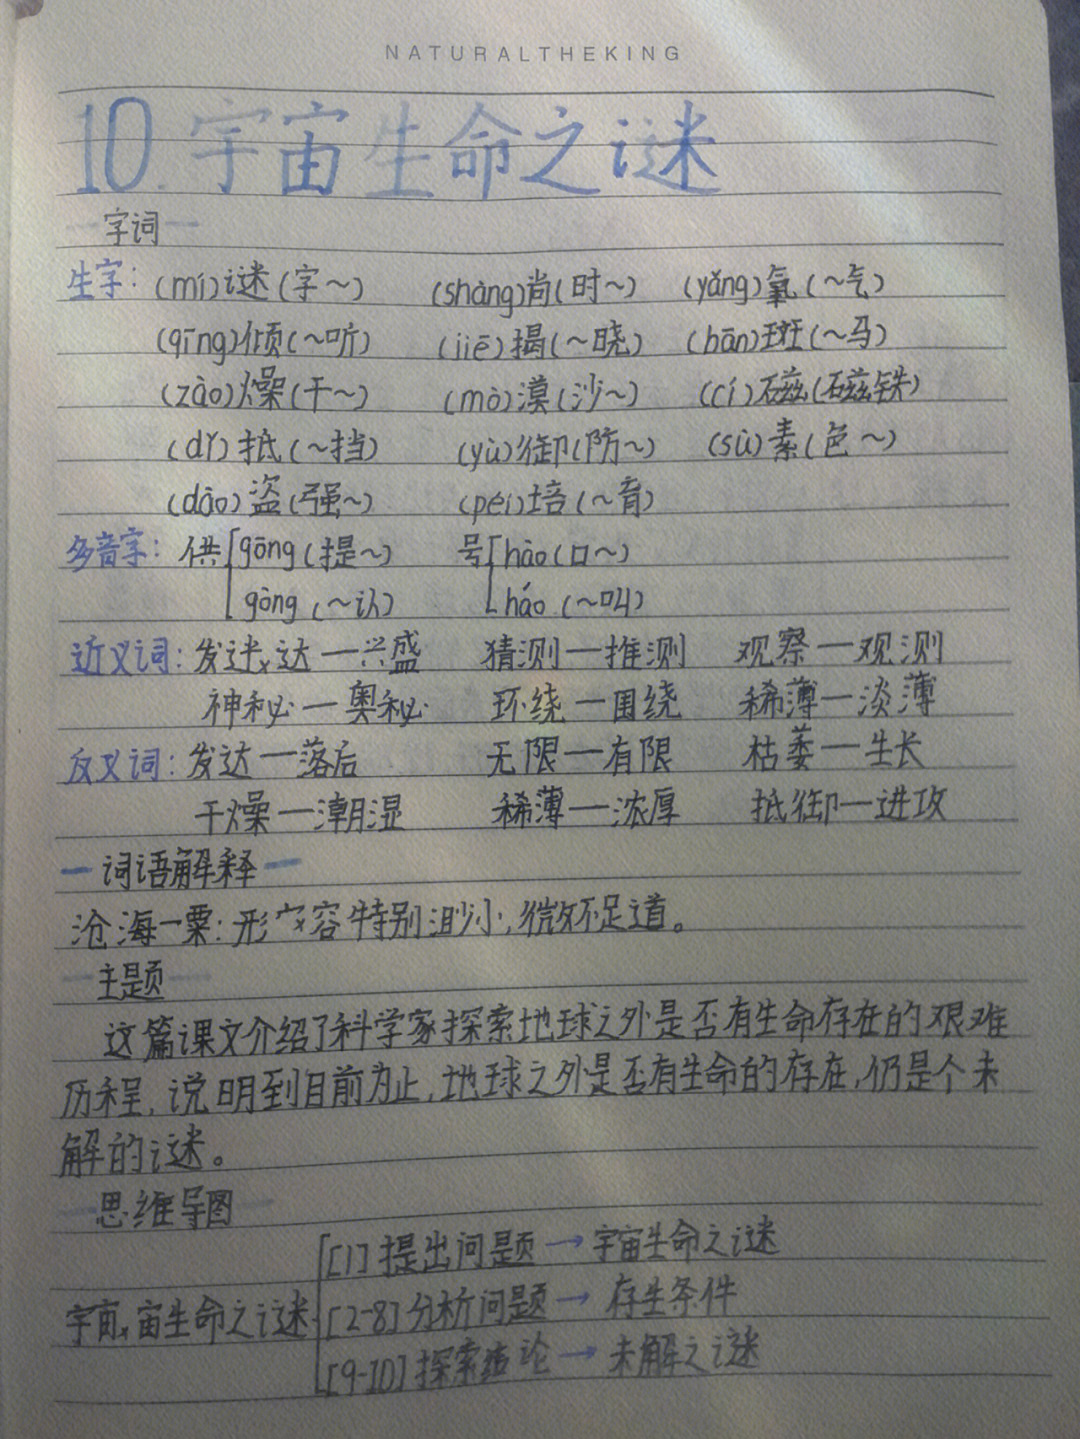 NATURALTHEKING
10.宇宙生命之谜
一字词一
生字：(mí)谜(字～) (shàng)尚(时～) (yǎng)氧(～气)
(qīng)倾(～听) (jiē)揭(～晓) (bān)斑(～马)
(zào)燥(干～) (mò)漠(沙～) (cí)磁(磁铁)
(dǐ)抵(～挡) (yù)御(防～) (sù)素(色～)
(dào)盗(强～) (péi)培(～育)
多音字：供[gōng(提～) 号[hào(口～)
gòng(～认) háo(～叫)
近义词：发达一兴盛 猜测一推测 观察一观测
神秘一奥秘 环绕一围绕 稀薄一淡薄
反义词：发达一落后 无限一有限 枯萎一生长
干燥一潮湿 稀薄一浓厚 抵御一进攻
一词语解释一
沧海一粟：形容特别渺小，微不足道。
一主题一
这篇课文介绍了科学家探索地球之外是否有生命存在的艰难
历程，说明到目前为止，地球之外是否有生命的存在，仍是个未
解的谜。
一思维导图一
[1]提出问题→宇宙生命之谜
宇宙生命之谜 [2-8]分析问题→存生条件
[9-10]探索结论→未解之谜